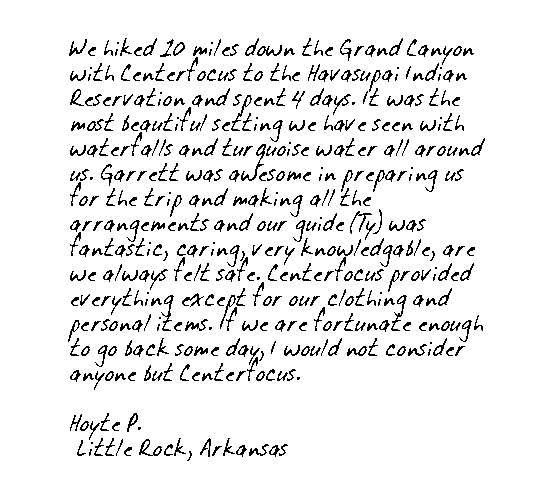 We hiked 10 miles down the Grand Canyon
with Centerfocus to the Havasupai Indian
Reservation and spent 4 days. It was the
most beautiful setting we have seen with
waterfalls and turquoise water all around
us. Garrett was awesome in preparing us
for the trip and making all the
arrangements and our guide (Ty) was
fantastic, caring, very knowledgable, are
we always felt safe. Centerfocus provided
everything except for our clothing and
personal items. If we are fortunate enough
to go back some day, I would not consider
anyone but Centerfocus.
Hoyte P.
Little Rock, Arkansas